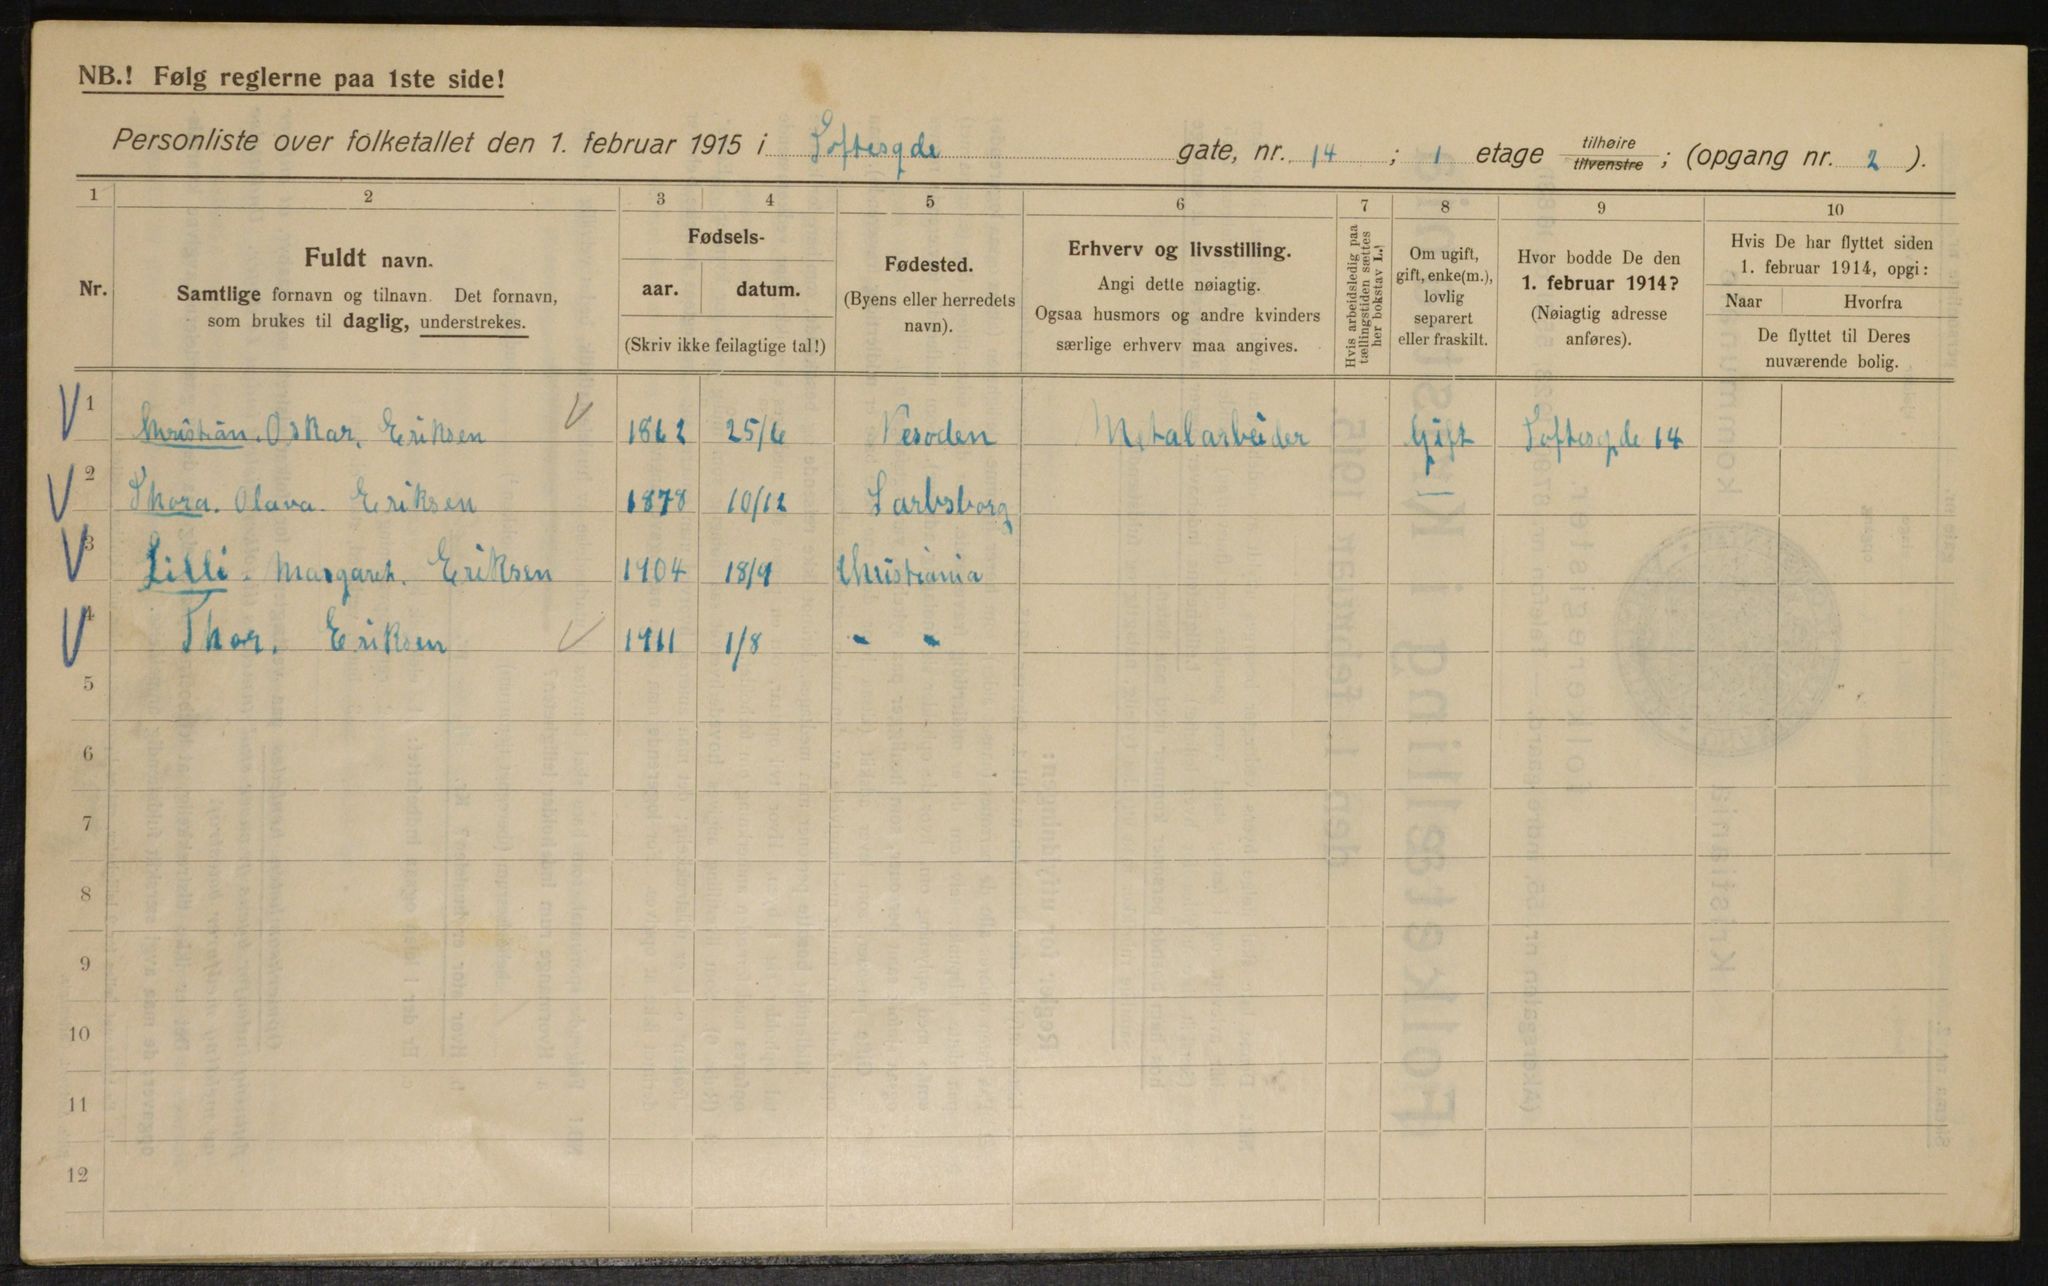 NB.! Følg reglerne paa 1ste side!
Personliste over folketallet den 1. februar 1915 i Loftesgde gate, nr. 14 ; 1 etage tilhøire tilvenstre ; (opgang nr. 2 ).
1 2 3 4 5 6 7 8 9 10
Nr.
Fuldt navn.
Samtlige fornavn og tilnavn. Det fornavn,
som brukes til daglig, understrekes.
Fødsels-
aar. datum.
(Skriv ikke feilagtige tal!)
Fødested.
(Byens eller herredets
navn).
Erhverv og livsstilling.
Angi dette nøiagtig.
Ogsaa husmors og andre kvinders
særlige erhverv maa angives.
Hvis arbeidsledig paa
tællingstiden sættes
her bokstav L.!
Om ugift,
gift, enke(m.),
lovlig
separert
eller fraskilt.
Hvor bodde De den
1. februar 1914?
(Nøiagtig adresse
anføres).
Hvis De har flyttet siden
1. februar 1914, opgi:
Naar Hvorfra
De flyttet til Deres
nuværende bolig.
1 Christian. Oskar. Eriksen 1862 25/6 Nesoden Metalarbeider Gift Loftesgde 14
2 Thora. Olava. Eriksen 1878 10/12 Sarbsborg
3 Lilli. Margaret. Eriksen 1904 18/9 Christiania
4 Thor. Eriksen 1911 1/8 - -
5
6
7
8
9
10
11
12